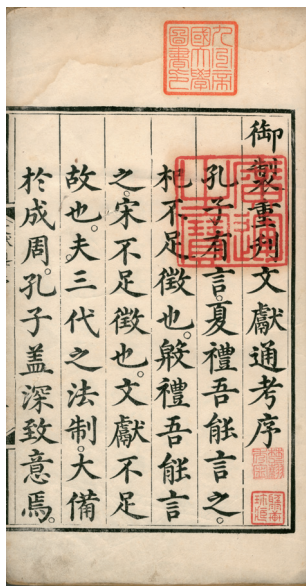 御製重刋文獻通考序
孔子有言。夏禮吾能言之。
杞不足徵也。殷禮吾能言
之。宋不足徵也。文獻不足
故也。夫三代之法制。大備
於成周。孔子盖深致意焉。
九州帝
國大學
圖書印